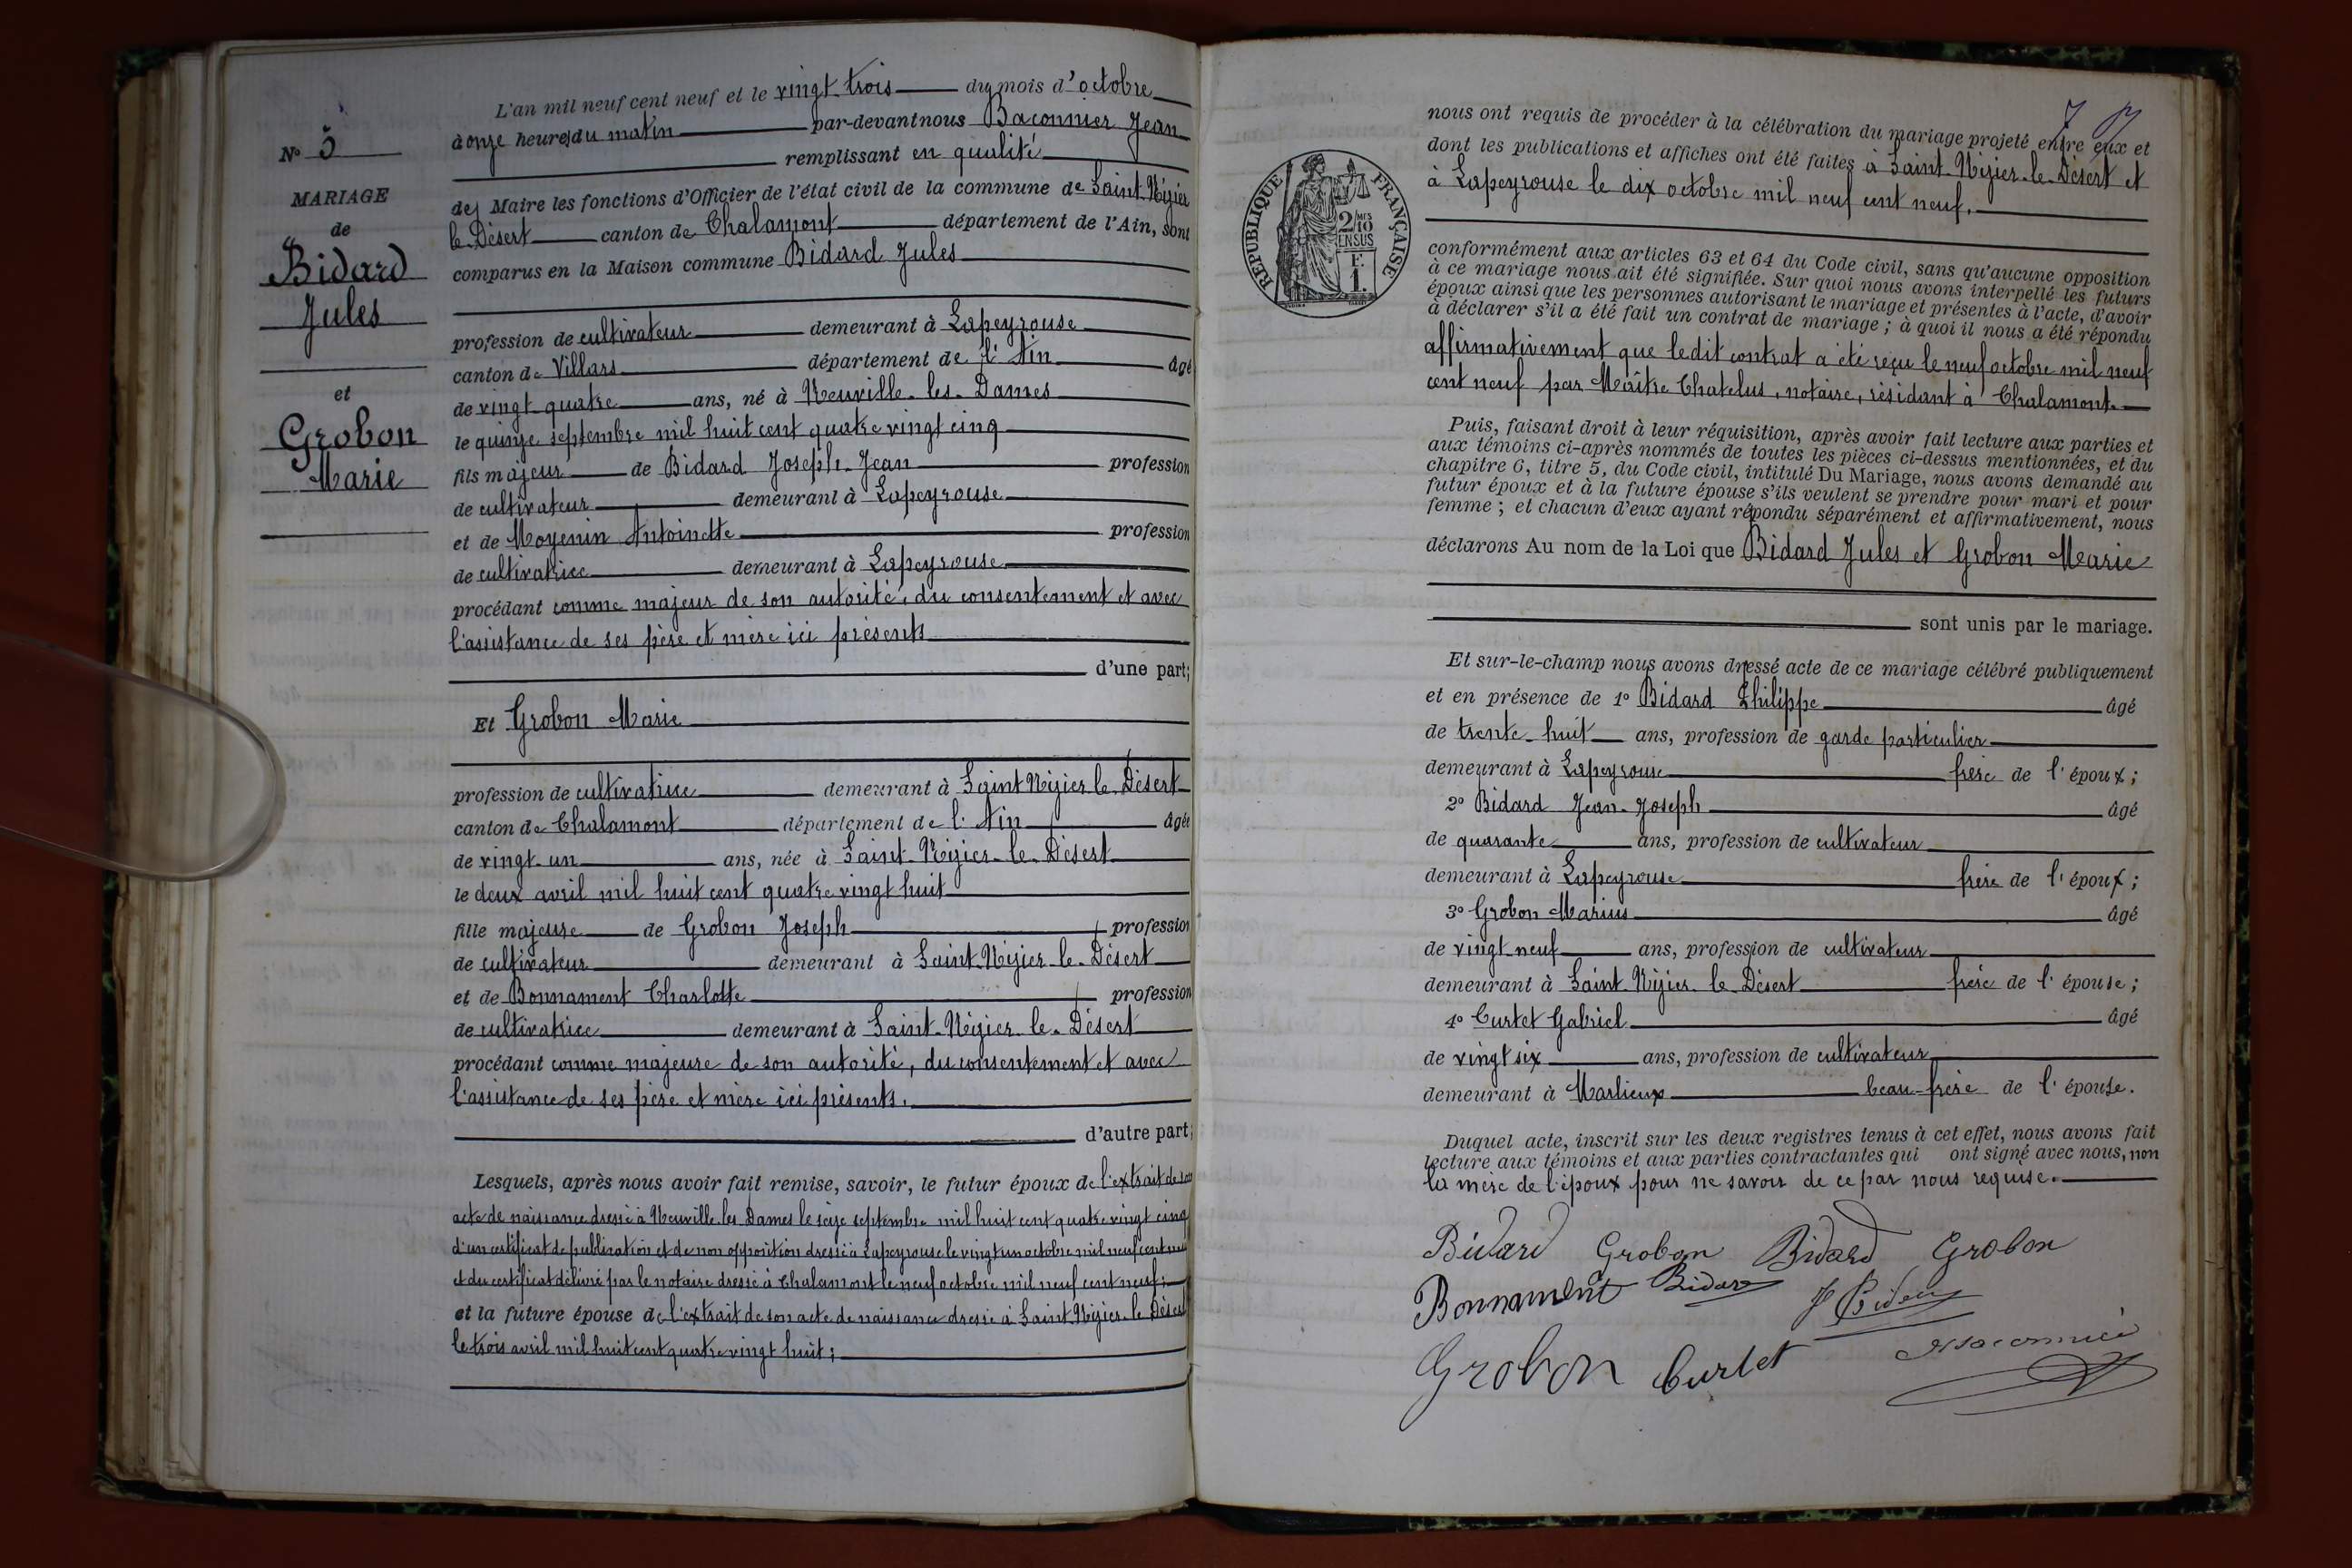 L'an mil neuf cent neuf et le vingt-trois du mois d'octobre
à onze heures du matin par-devant nous Baconnier Jean
remplissant en qualité
de Maire les fonctions d'Officier de l'état civil de la commune de Saint-Nizier
le-Désert canton de Chalamont département de l'Ain, sont
comparus en la Maison commune Bidard Jules
profession de cultivateur demeurant à Lapeyrouse
canton de Villars département de l'Ain âgé
de vingt-quatre ans, né à Neuville-les-Dames
le quinze septembre mil huit cent quatre vingt cinq
fils majeur de Bidard Joseph-Jean profession
de cultivateur demeurant à Lapeyrouse
et de Moyenin Antoinette profession
de cultivatrice demeurant à Lapeyrouse
procédant comme majeur de son autorité, du consentement et avec
l'assistance de ses père et mère ici présents
d'une part;
Et Grobon Marie
profession de cultivatrice demeurant à Saint Nizier le Désert
canton de Chalamont département de l'Ain âgée
de vingt-un ans, née à Saint-Nizier-le-Désert
le deux avril mil huit cent quatre vingt huit
fille majeure de Grobon Joseph profession
de cultivateur demeurant à Saint-Nizier-le-Désert
et de Bonnament Charlotte profession
de cultivatrice demeurant à Saint-Nizier-le-Désert
procédant comme majeure de son autorité, du consentement et avec
l'assistance de ses père et mère ici présents.
d'autre part;
Lesquels, après nous avoir fait remise, savoir, le futur époux de l'extrait de son
acte de naissance dressé à Neuville les Dames le seize septembre mil huit cent quatre vingt cinq
d'un certificat de publication et de non opposition dressé à Lapeyrouse le vingt un octobre mil neuf cent neuf
et du certificat délivré par le notaire dressé à Chalamont le neuf octobre mil neuf cent neuf;
et la future épouse de l'extrait de son acte de naissance dressé à Saint-Nizier-le-Désert
le trois avril mil huit cent quatre vingt huit;
N° 5
MARIAGE
de
Bidard
Jules
et
Grobon
Marie
7
nous ont requis de procéder à la célébration du mariage projeté entre eux et
dont les publications et affiches ont été faites à Saint-Nizier-le-Désert et
à Lapeyrouse le dix octobre mil neuf cent neuf.
RÉPUBLIQUE FRANÇAISE
2/10
MES
EN SUS
F.
1.
conformément aux articles 63 et 64 du Code civil, sans qu'aucune opposition
à ce mariage nous ait été signifiée. Sur quoi nous avons interpellé les futurs
époux ainsi que les personnes autorisant le mariage et présentes à l'acte, d'avoir
à déclarer s'il a été fait un contrat de mariage; à quoi il nous a été répondu
affirmativement que ledit contrat a été reçu le neuf octobre mil neuf
cent neuf par Maître Chatelus, notaire, résidant à Chalamont.
Puis, faisant droit à leur réquisition, après avoir fait lecture aux parties et
aux témoins ci-après nommés de toutes les pièces ci-dessus mentionnées, et du
chapitre 6, titre 5, du Code civil, intitulé Du Mariage, nous avons demandé au
futur époux et à la future épouse s'ils veulent se prendre pour mari et pour
femme; et chacun d'eux ayant répondu séparément et affirmativement, nous
déclarons Au nom de la Loi que Bidard Jules et Grobon Marie
sont unis par le mariage.
Et sur-le-champ nous avons dressé acte de ce mariage célébré publiquement
et en présence de 1° Bidard Philippe âgé
de trente-huit ans, profession de garde particulier
demeurant à Lapeyrouse frère de l'époux;
2° Bidard Jean-Joseph âgé
de quarante ans, profession de cultivateur
demeurant à Lapeyrouse frère de l'époux;
3° Grobon Marius âgé
de vingt neuf ans, profession de cultivateur
demeurant à Saint-Nizier-le-Désert frère de l'épouse;
4° Curtet Gabriel âgé
de vingt six ans, profession de cultivateur
demeurant à Marlieux beau-frère de l'épouse.
Duquel acte, inscrit sur les deux registres tenus à cet effet, nous avons fait
lecture aux témoins et aux parties contractantes qui ont signé avec nous, non
la mère de l'époux pour ne savoir de ce par nous requise.
Bidard Grobon Bidard Grobon
Bonnament Bidard J Bidard
Grobon Curtet Baconnier